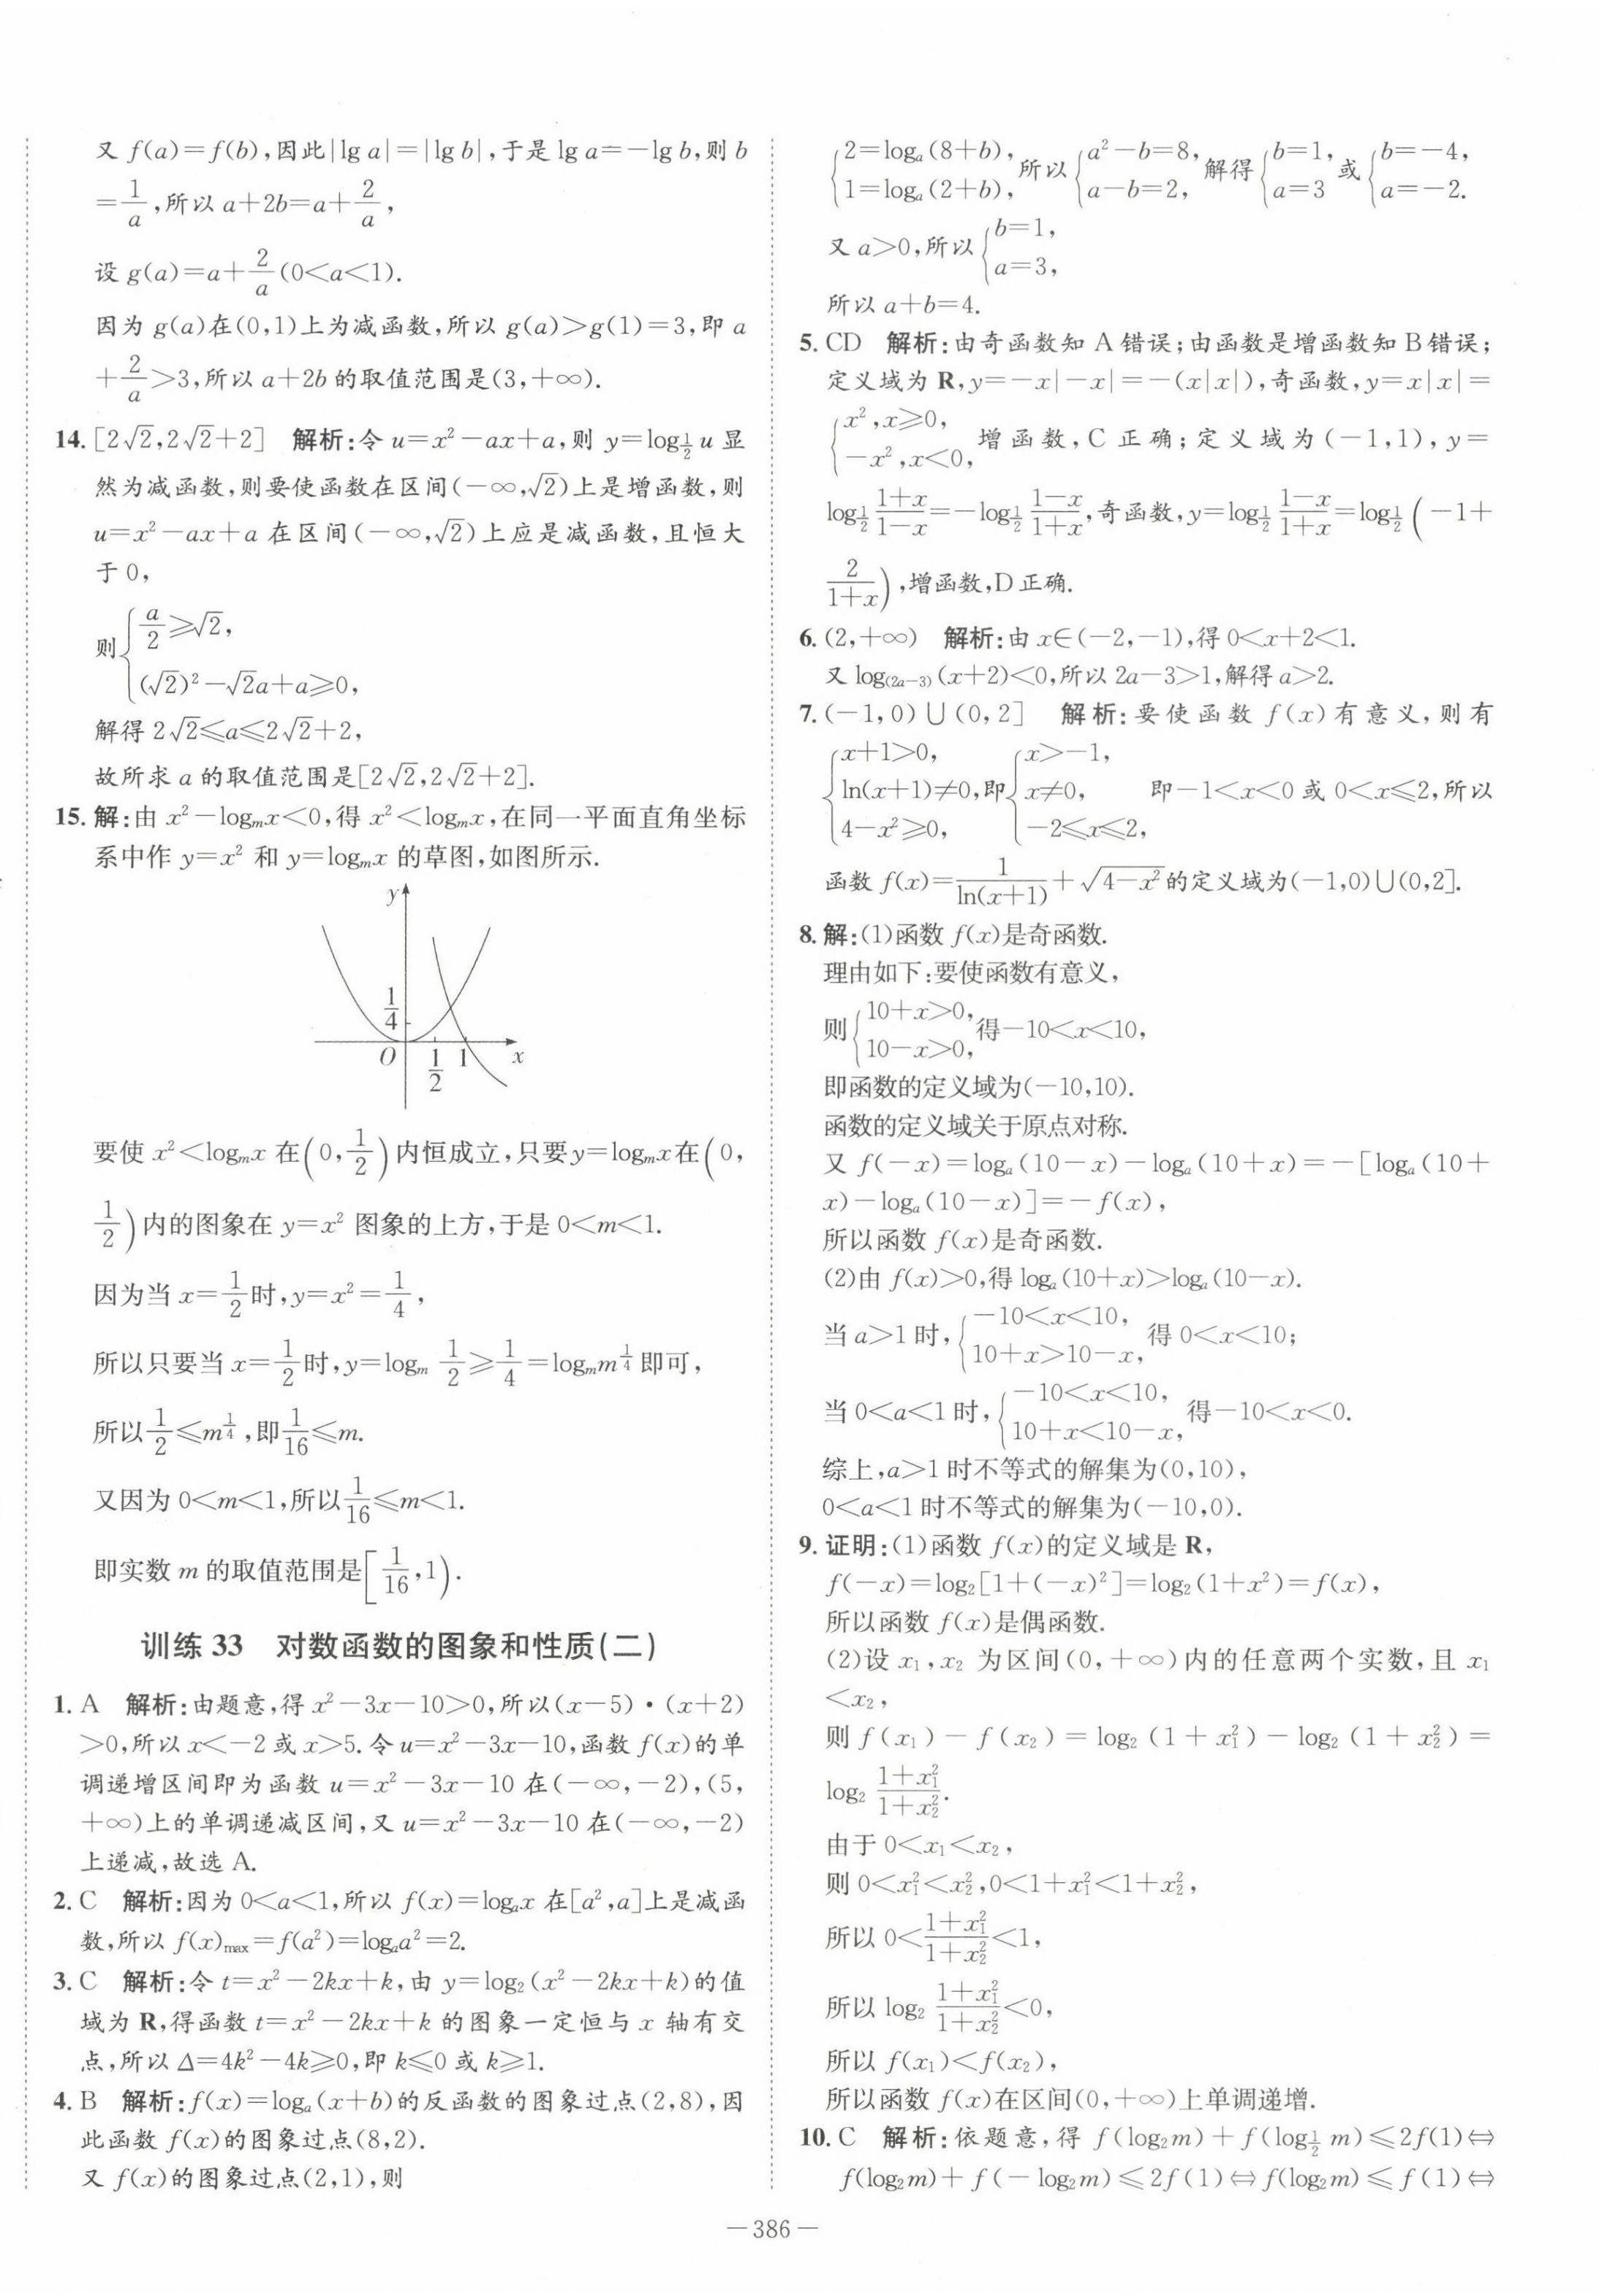 又 f(a)=f(b),因此|lg a|=|lg b|,于是 lg a=-lg b,则 b
=1/a,所以 a+2b=a+2/a,
设 g(a)=a+2/a(0<a<1).
因为 g(a)在(0,1)上为减函数,所以 g(a)>g(1)=3,即 a
+2/a>3,所以 a+2b 的取值范围是(3,+∞).
14.[2√2,2√2+2] 解析:令 u=x²-ax+a,则 y=log_{1/2} u 显
然为减函数,则要使函数在区间(-∞,√2)上是增函数,则
u=x²-ax+a 在区间(-∞,√2)上应是减函数,且恒大
于 0,
则{a/2≥√2,
(√2)²-√2a+a≥0,
解得 2√2≤a≤2√2+2,
故所求 a 的取值范围是[2√2,2√2+2].
15.解:由 x²-logₘx<0,得 x²<logₘx,在同一平面直角坐标
系中作 y=x² 和 y=logₘx 的草图,如图所示.
y
1/4
O 1/2 1 x
要使 x²<logₘx 在(0,1/2)内恒成立,只要y=logₘx在(0,
1/2)内的图象在 y=x² 图象的上方,于是 0<m<1.
因为当 x=1/2时,y=x²=1/4,
所以只要当 x=1/2时,y=logₘ 1/2≥1/4=logₘm^{1/4}即可,
所以1/2≤m^{1/4},即1/16≤m.
又因为 0<m<1,所以1/16≤m<1.
即实数 m 的取值范围是[1/16,1).
训练 33 对数函数的图象和性质(二)
1. A 解析:由题意,得 x²-3x-10>0,所以(x-5)·(x+2)
>0,所以 x<-2 或 x>5.令 u=x²-3x-10,函数 f(x)的单
调递增区间即为函数 u=x²-3x-10 在(-∞,-2),(5,
+∞)上的单调递减区间,又 u=x²-3x-10 在(-∞,-2)
上递减,故选 A.
2. C 解析:因为 0<a<1,所以 f(x)=logₐx 在[a²,a]上是减函
数,所以 f(x)max=f(a²)=logₐa²=2.
3. C 解析:令 t=x²-2kx+k,由 y=log₂(x²-2kx+k)的值
域为 R,得函数 t=x²-2kx+k 的图象一定恒与 x 轴有交
点,所以 Δ=4k²-4k≥0,即 k≤0 或 k≥1.
4. B 解析:f(x)=logₐ(x+b)的反函数的图象过点(2,8),因
此函数 f(x)的图象过点(8,2).
又 f(x)的图象过点(2,1),则
{2=logₐ(8+b), 1=logₐ(2+b),所以{a²-b=8, a-b=2,解得{b=1, a=3或{b=-4, a=-2.
又 a>0,所以{b=1, a=3,
所以 a+b=4.
5. CD 解析:由奇函数知 A 错误;由函数是增函数知 B 错误;
定义域为 R,y=-x|-x|=-(x|x|),奇函数,y=x|x|=
{x²,x≥0, -x²,x<0,增函数,C 正确;定义域为(-1,1),y=
log_{1/2} (1+x)/(1-x)=-log_{1/2} (1-x)/(1+x),奇函数,y=log_{1/2} (1-x)/(1+x)=log_{1/2}(-1+
2/(1+x)),增函数,D 正确.
6. (2,+∞) 解析:由 x∈(-2,-1),得 0<x+2<1.
又 log_{(2a-3)}(x+2)<0,所以 2a-3>1,解得 a>2.
7. (-1,0)∪(0,2] 解析:要使函数 f(x)有意义,则有
{x+1>0, ln(x+1)≠0, 4-x²≥0,即{x>-1, x≠0, -2≤x≤2,即-1<x<0 或 0<x≤2,所以
函数 f(x)=1/ln(x+1)+√(4-x²)的定义域为(-1,0)∪(0,2].
8. 解:(1)函数 f(x)是奇函数.
理由如下:要使函数有意义,
则{10+x>0, 10-x>0,得-10<x<10,
即函数的定义域为(-10,10).
函数的定义域关于原点对称.
又 f(-x)=logₐ(10-x)-logₐ(10+x)=-[logₐ(10+
x)-logₐ(10-x)]=-f(x),
所以函数 f(x)是奇函数.
(2)由 f(x)>0,得 logₐ(10+x)>logₐ(10-x).
当 a>1 时,{-10<x<10, 10+x>10-x,得 0<x<10;
当 0<a<1 时,{-10<x<10, 10+x<10-x,得-10<x<0.
综上,a>1 时不等式的解集为(0,10),
0<a<1 时不等式的解集为(-10,0).
9. 证明:(1)函数 f(x)的定义域是 R,
f(-x)=log₂[1+(-x)²]=log₂(1+x²)=f(x),
所以函数 f(x)是偶函数.
(2)设 x₁,x₂ 为区间(0,+∞)内的任意两个实数,且 x₁
<x₂,
则 f(x₁)-f(x₂)=log₂(1+x₁²)-log₂(1+x₂²)=
log₂ (1+x₁²)/(1+x₂²).
由于 0<x₁<x₂,
则 0<x₁²<x₂²,0<1+x₁²<1+x₂²,
所以 0<(1+x₁²)/(1+x₂²)<1,
所以 log₂ (1+x₁²)/(1+x₂²)<0,
所以 f(x₁)<f(x₂),
所以函数 f(x)在区间(0,+∞)上单调递增.
10. C 解析:依题意,得 f(log₂m)+f(log_{1/2} m)≤2f(1)⇔
f(log₂m)+f(-log₂m)≤2f(1)⇔f(log₂m)≤f(1)⇔
—386—